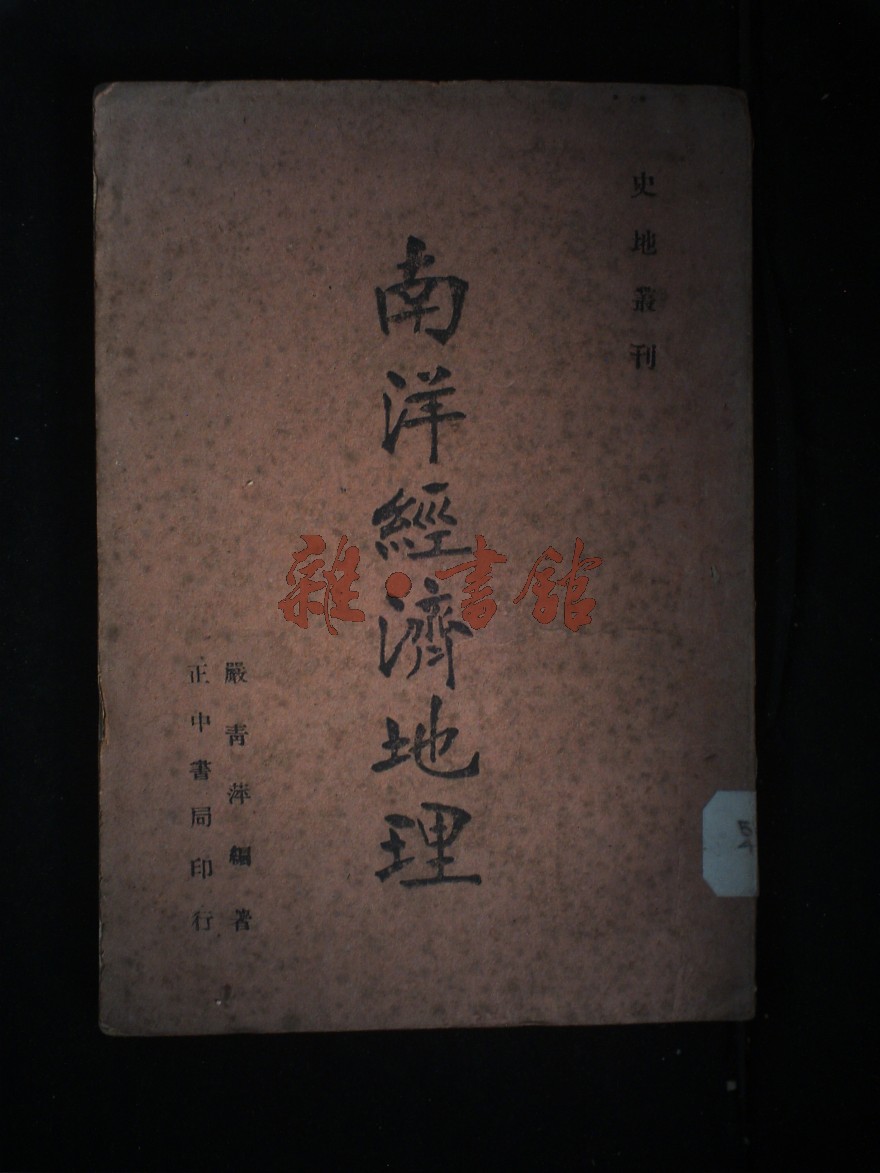 史地叢刊
南洋經濟地理
嚴青萍編著
正中書局印行
雜·書館